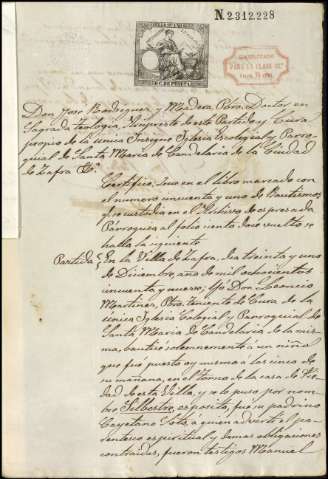 N. 2.312.228
Don José Rodriguez y Madera Pbro. Doctor en
Sagrada Teologia, Arcipreste de este Partido y Cura
propio de la única Insigne Iglesia Colegial y Parro-
quial de Santa Maria de Candelaria de la Ciudad
de Zafra &ª
Certifico: que en el libro marcado con
el numero cincuenta y uno de Bautismos
que se custodia en el Archivo de expresada
Parroquia al folio ciento doce vuelto se
halla la siguiente
Partida En la Villa de Zafra, dia treinta y uno
de Diciembre, año de mil ochocientos
cincuenta y nueve: Yo Don Leoncio
Martinez, Pbro. teniente de Cura de la
única Iglesia Colegial y Parroquial de
Santa Maria de Candelaria de la mis-
ma, bautice solemnemente a un niño
que fué puesto oy misma á las cinco de
su mañana, en el torno de la casa de Pie-
dad de esta Villa, y se le puso por nom-
bre Silbestre, esposito, fue su padrino
Cayetano Soto, a quien adverti el pa-
rentesco espiritual y demas obligaciones
contraidas, fueron testigos Manuel